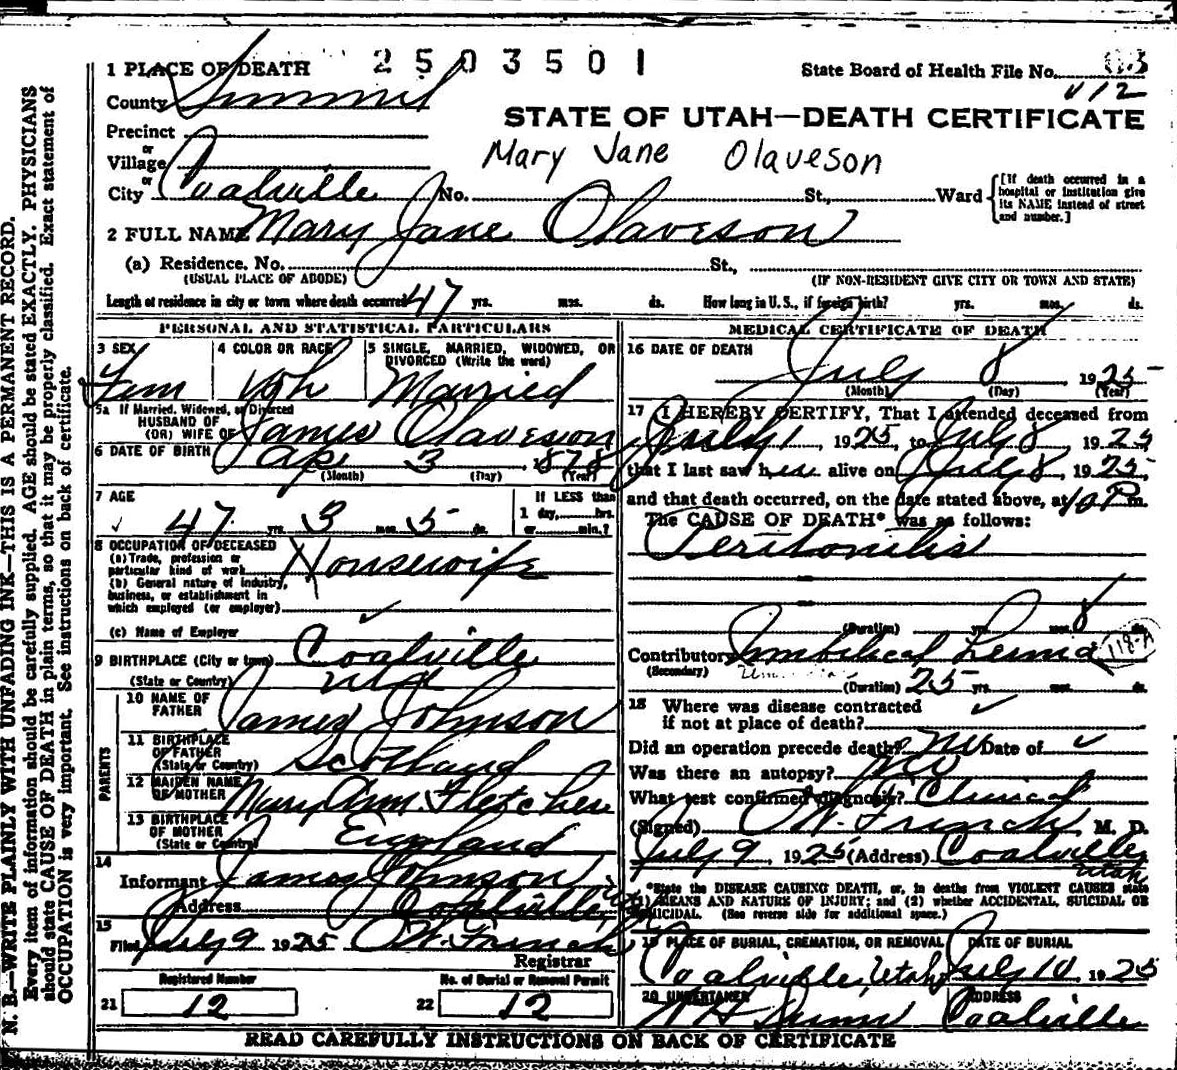 N. B.—WRITE PLAINLY WITH UNFADING INK—THIS IS A PERMANENT RECORD.
Every item of information should be carefully supplied. AGE should be stated EXACTLY. PHYSICIANS
should state CAUSE OF DEATH in plain terms, so that it may be properly classified. Exact statement of
OCCUPATION is very important. See instructions on back of certificate.
2503501
1 PLACE OF DEATH
State Board of Health File No.
112
County Summit
STATE OF UTAH—DEATH CERTIFICATE
Precinct
or
Village
Mary Jane Olaveson
or
City Coalville No. St., Ward
[If death occurred in a
hospital or institution give
its NAME instead of street
and number.]
2 FULL NAME Mary Jane Olaveson
(a) Residence. No. St.,
(USUAL PLACE OF ABODE) (IF NON-RESIDENT GIVE CITY OR TOWN AND STATE)
Length of residence in city or town where death occurred 47 yrs. mos. ds. How long in U. S., if foreign birth? yrs. mos. ds.
PERSONAL AND STATISTICAL PARTICULARS
3 SEX
Fem
4 COLOR OR RACE
Wh
5 SINGLE, MARRIED, WIDOWED, OR
DIVORCED (Write the word)
Married
5a If Married, Widowed, or Divorced
HUSBAND OF
(OR) WIFE OF James Olaveson
6 DATE OF BIRTH Ap 3 1878
(Month) (Day) (Year)
7 AGE
47 yrs. 3 mos. 5 ds.
If LESS than
1 day,.....hrs.
or.....min.?
8 OCCUPATION OF DECEASED
(a) Trade, profession or
particular kind of work Housewife
(b) General nature of industry,
business, or establishment in
which employed (or employer)
(c) Name of Employer
9 BIRTHPLACE (City or town) Coalville
(State or Country) Utah
PARENTS
10 NAME OF
FATHER James Johnson
11 BIRTHPLACE
OF FATHER
(State or Country) Scotland
12 MAIDEN NAME
OF MOTHER Mary Ann Fletcher
13 BIRTHPLACE
OF MOTHER
(State or Country) England
14
Informant James Johnson
Address Coalville,
15
Filed July 9 1925
Registrar
Registered Number
21 12
No. of Burial or Removal Permit
22 12
MEDICAL CERTIFICATE OF DEATH
16 DATE OF DEATH
July 8 1925
(Month) (Day) (Year)
17 I HEREBY CERTIFY, That I attended deceased from
July 1, 1925, to July 8 1925
that I last saw her alive on July 8, 1925
and that death occurred, on the date stated above, at 10 P m.
The CAUSE OF DEATH* was as follows:
Peritonitis
(Duration) yrs. mos. 8 ds.
Contributory Umbilical hernia
(Secondary)
118-A
(Duration) 25 yrs. mos. ds.
18 Where was disease contracted
if not at place of death?
Did an operation precede death? no Date of
Was there an autopsy? no
What test confirmed diagnosis? Clinical
(Signed) M. D.
July 9, 1925 (Address) Coalville
Utah
*State the DISEASE CAUSING DEATH, or, in deaths from VIOLENT CAUSES state
(1) MEANS AND NATURE OF INJURY; and (2) whether ACCIDENTAL, SUICIDAL OR
HOMICIDAL. (See reverse side for additional space.)
19 PLACE OF BURIAL, CREMATION, OR REMOVAL
Coalville, Utah
DATE OF BURIAL
July 10 1925
20 UNDERTAKER
ADDRESS
Coalville
READ CAREFULLY INSTRUCTIONS ON BACK OF CERTIFICATE